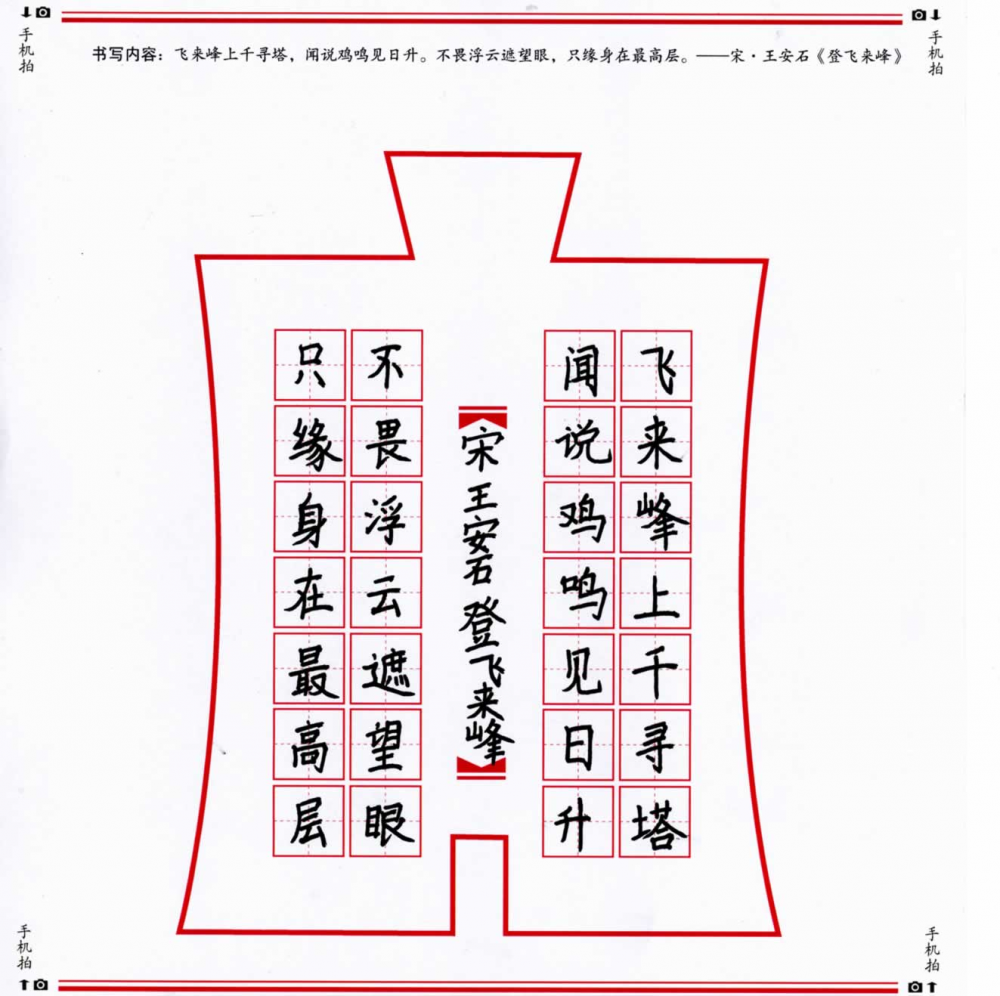 手机拍
手机拍
书写内容：飞来峰上千寻塔，闻说鸡鸣见日升。不畏浮云遮望眼，只缘身在最高层。——宋·王安石《登飞来峰》
飞来峰上千寻塔
闻说鸡鸣见日升
宋 王安石 登飞来峰
不畏浮云遮望眼
只缘身在最高层
手机拍
手机拍